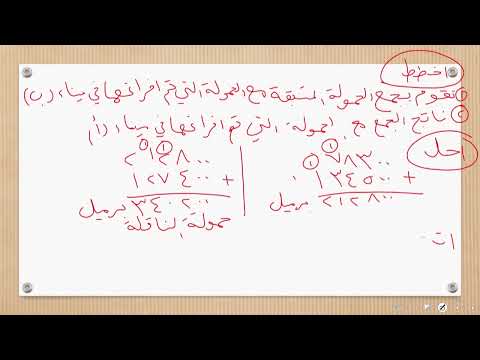 اخطط
① نقوم بجمع الحمولة المتبقية مع الحمولة التي تم افراغها في ميناء (ب)
② ناتج الجمع مع احمولة التي تم افراغها في ميناء (أ)
احل
① ①
٧٨٣٠٠
١٣٤٥٠٠ +
٢١٢٨٠٠ برميل
① ①
٢١٢٨٠٠
١٢٧٤٠٠ +
٣٤٠٢٠٠ برميل
حمولة الناقلة
ات